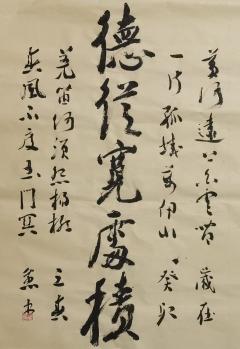 黃河遠上白雲間 歲在
一片孤城萬仞山 癸卯
德從寬處積
羌笛何須怨楊柳 之春
春風不度玉門關